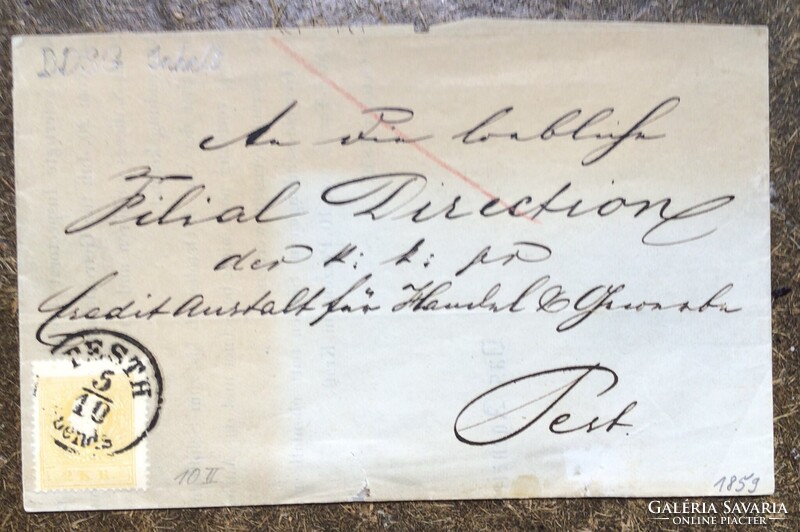 An die loebliche
Filial Direction
der k: k: pr
Credit Anstalt für Handel & Gewerbe
Pest.
PESTH
5/10
Abends
2 KR
10 II
1859
GALÉRIA SAVARIA
ONLINE PIACTÉR